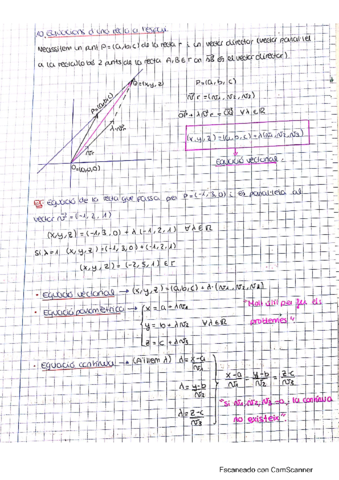 1) Equacions d'una recta a l'espai
Necessitem un punt P=(a,b,c) de la recta r i un vector director (vector paral·lel
a la recta) o bé 2 punts de la recta A, B ∈ r on AB es el vector director).
P=(a,b,c)
v⃗r=(v1, v2, v3)
OP + λv⃗r = OQ ∀λ∈ℝ
(x,y,z)=(a,b,c)+λ(v1,v2,v3)
Equació vectorial.
P=(a,b,c)
Q=(x,y,z)
λv⃗r
v⃗r
O=(0,0,0)
Ej Equació de la recta que passa per P=(-1,3,0) i és paral·lela al
vector v⃗=(-1,2,1)
(x,y,z)=(-1,3,0)+λ(-1,2,1) ∀λ∈ℝ
Si λ=1 (x,y,z)=(-1,3,0)+(-1,2,1)
(x,y,z)=(-2,5,1)∈r
· Equació vectorial → (x,y,z)=(a,b,c)+λ·(v1,v2,v3)
· Equació paramètrica → x=a+λv1
y=b+λv2 ∀λ∈ℝ
z=c+λv3
"Molt útil per fer els
problemes"
· Equació contínua → (Aïllem λ) λ=x-a/v1
λ=y-b/v2
λ=z-c/v3
x-a/v1 = y-b/v2 = z-c/v3
"Si v1,v2,v3=0, la contínua
no existeix"
Escaneado con CamScanner